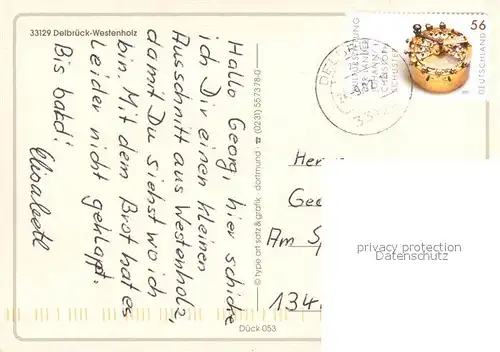 33129 Delbrück-Westenholz
Hallo Georg, hier schicke
ich Dir einen kleinen
Ausschnitt aus Westenholz,
damit Du siehst wo ich
bin. Mit dem Brot hat es
Leider nicht geklappt.
Bis bald!
Elisabeth
© type art satz & grafik · dortmund · ☎ (0231) 557378-0
Dück 053
56
DEUTSCHLAND
Herr
Geo
Am Sp
134
privacy protection
Datenschutz